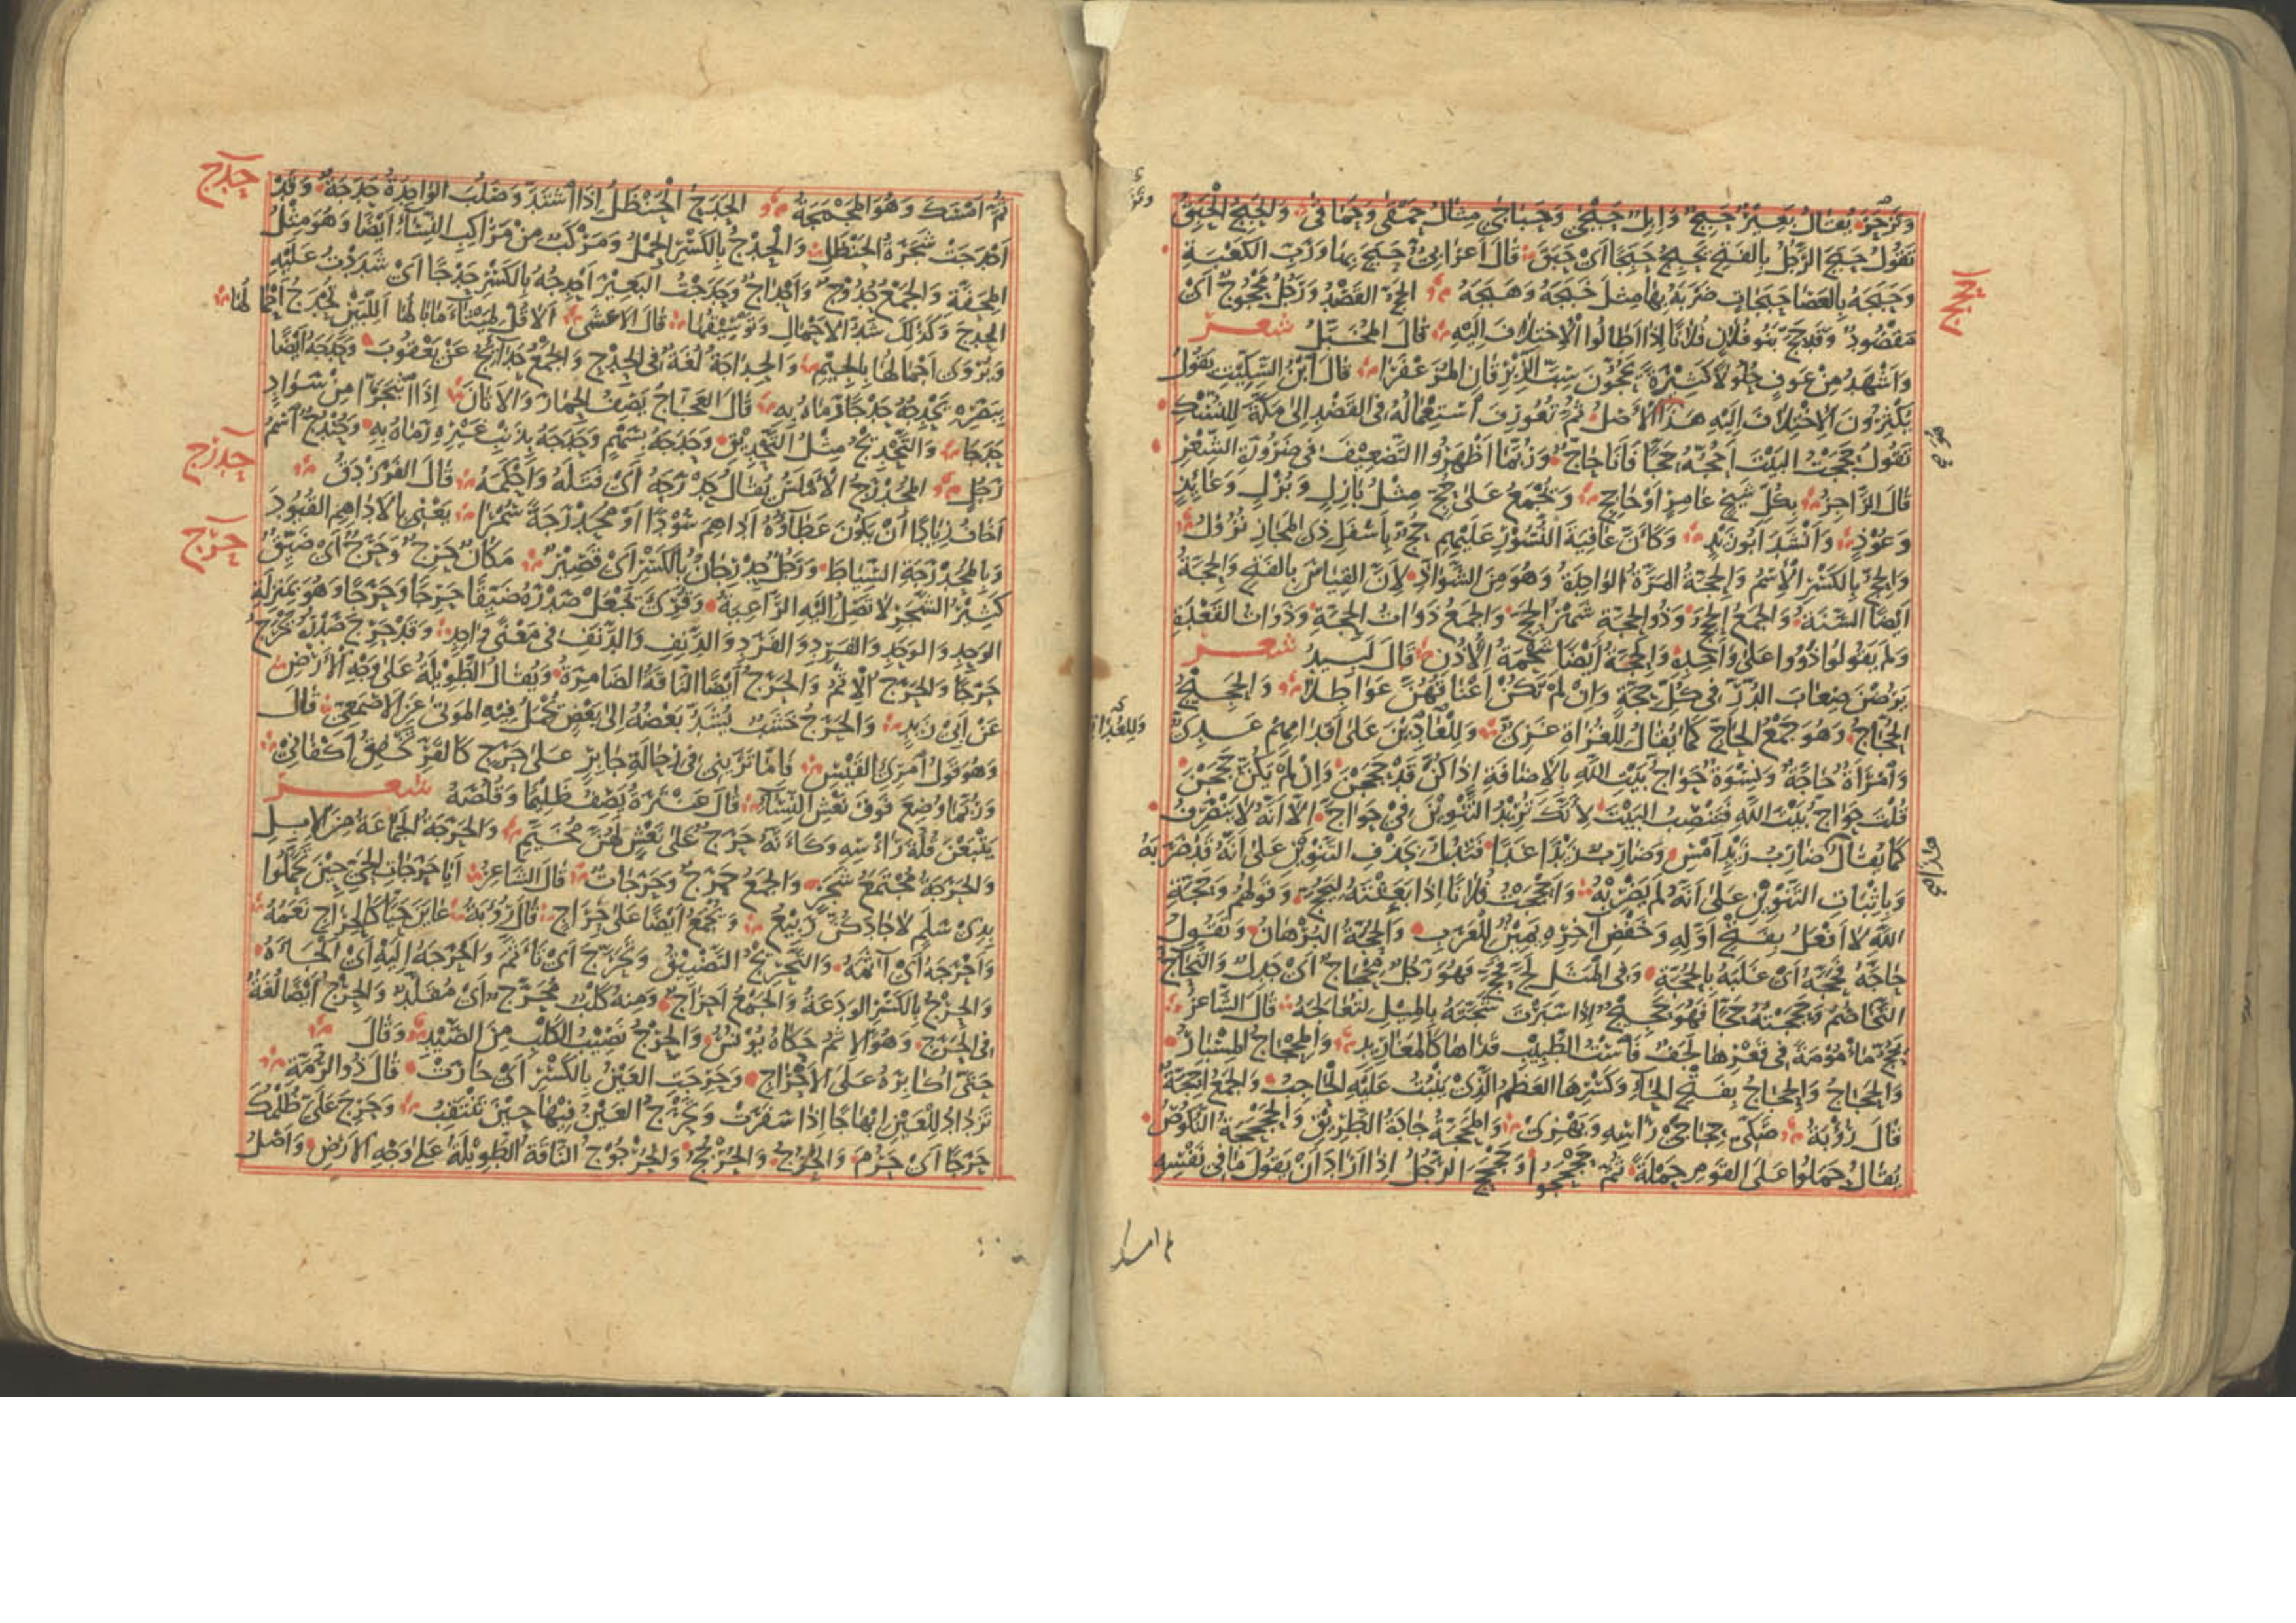 وَتَزْحَرَ يُقَالُ بَعِيرٌ حَبِجٌ وَإبِلٌ حَبْجَى وَحَبَاجَى مِثَالُ حَمْقَى وَحَمَاقَى وَالحَبِجُ الحَبِقُ
تَقُولُ حَبَجَ الرَّجُلُ بِالفَتْحِ يَحْبِجُ حَبْجًا أَىْ حَبَقَ قَالَ أَعْرَابِىٌّ حَبَجَ بِهَا وَرَبِّ الكَعْبَةِ
وَحَبَجَهُ بِالعَصَا حَبَجَاتٍ ضَرَبَهُ بِهَا مِثْلُ خَبَجَهُ وَهَبَجَهُ الحَجُّ القَصْدُ وَرَجُلٌ مَحْجُوجٌ أَىْ
مَقْصُودٌ وَقَدْ حَجَّ بَنُو فُلَانٍ فُلَانًا إِذَا أَطَالُوا الاِخْتِلَافَ إِلَيْهِ قَالَ المُخَبَّلُ شعر
وَأَشْهَدُ مِنْ عَوْفٍ حُلُولًا كَثِيرَةً يَحُجُّونَ سِبَّ الزِّبْرِقَانِ المُزَعْفَرَا قَالَ ابْنُ السِّكِّيتِ يَقُولُ
يُكْثِرُونَ الاِخْتِلَافَ إِلَيْهِ هَذَا الأَصْلُ ثُمَّ تُعُورِفَ اسْتِعْمَالُهُ فِى القَصْدِ إِلَى مَكَّةَ لِلنُّسُكِ
تَقُولُ حَجَجْتُ البَيْتَ أَحُجُّهُ حَجًّا فَأَنَا حَاجٌّ وَرُبَّمَا أَظْهَرُوا التَّضْعِيفَ فِى ضَرُورَةِ الشِّعْرِ
قَالَ الرَّاجِزُ بِكُلِّ شَيْخٍ عَامِرٍ أَوْ حَاجِجِ وَيُجْمَعُ عَلَى حُجٍّ مِثْلُ بَازِلٍ وَبُزْلٍ وَعَائِذٍ
وَعُوذٍ وَأَنْشَدَ أَبُو زَيْدٍ وَكَأَنَّ عَافِيَةَ النُّسُورِ عَلَيْهِمِ حُجٌّ بِأَسْفَلِ ذِى المَجَازِ نُزُولُ
وَالحِجُّ بِالكَسْرِ الاِسْمُ وَالحِجَّةُ المَرَّةُ الوَاحِدَةُ وَهُوَ مِنَ الشَّوَاذِّ لِأَنَّ القِيَاسَ بِالفَتْحِ وَالحِجَّةُ
أَيْضًا السَّنَةُ وَالجَمْعُ الحِجَجُ وَذُو الحِجَّةِ شَهْرُ الحَجِّ وَالجَمْعُ ذَوَاتُ الحِجَّةِ وَذَوَاتُ القَعْدَةِ
وَلَمْ يَقُولُوا ذَوُوا عَلَى وَاحِدِهِ وَالحِجَّةُ أَيْضًا شَحْمَةُ الأُذُنِ قَالَ لَبِيدٌ شعر
يَرُضْنَ صِعَابَ الدُّرِّ فِى كُلِّ حِجَّةٍ وَإِنْ لَمْ تَكُنْ أَعْنَاقُهُنَّ عَوَاطِلَا وَالحَجِيجُ
الحُجَّاجُ وَهُوَ جَمْعُ الحَاجِّ كَمَا يُقَالُ لِلْغُزَاةِ غَزِىٌّ وَلِلْعَادِينَ عَلَى أَقْدَامِهِمْ عَدِىٌّ
وَامْرَأَةٌ حَاجَّةٌ وَنِسْوَةٌ حَوَاجُّ بَيْتِ اللَّهِ بِالإِضَافَةِ إِذَا كُنَّ قَدْ حَجَجْنَ وَإِنْ لَمْ يَكُنَّ حَجَجْنَ
قُلْتَ حَوَاجُّ بَيْتَ اللَّهِ فَتَنْصِبُ البَيْتَ لِأَنَّكَ تُرِيدُ التَّنْوِينَ فِى حَوَاجَّ إِلَّا أَنَّهُ لَا يَنْصَرِفُ
كَمَا يُقَالُ ضَارِبُ زَيْدٍ أَمْسِ وَضَارِبٌ زَيْدًا غَدًا فَتَدُلُّ بِحَذْفِ التَّنْوِينِ عَلَى أَنَّهُ قَدْ ضَرَبَهُ
وَبِإِثْبَاتِ التَّنْوِينِ عَلَى أَنَّهُ لَمْ يَضْرِبْهُ وَأَحْجَجْتُ فُلَانًا إِذَا بَعَثْتَهُ لِيَحُجَّ وَقَوْلُهُمْ وَحَجَّةِ
اللَّهِ لَا أَفْعَلُ بِفَتْحِ أَوَّلِهِ وَخَفْضِ آخِرِهِ يَمِينٌ لِلْعَرَبِ وَالحُجَّةُ البُرْهَانُ وَتَقُولُ
حَاجَّهُ فَحَجَّهُ أَىْ غَلَبَهُ بِالحُجَّةِ وَفِى المَثَلِ لَجَّ فَحَجَّ فَهُوَ رَجُلٌ مِحْجَاجٌ أَىْ جَدِلٌ وَالتَّحَاجُّ
التَّخَاصُمُ وَحَجَجْتُهُ حَجًّا فَهُوَ حَجِيجٌ إِذَا سَبَرْتَ شَجَّتَهُ بِالمِيلِ لِتُعَالِجَهُ قَالَ الشَّاعِرُ
يَحُجُّ مَأْمُومَةً فِى قَعْرِهَا لَجَفٌ فَاسْتُ الطَّبِيبِ قَذَاهَا كَالمَغَارِيدِ وَالمِحْجَاجُ المِسْبَارُ
وَالحَجَاجُ وَالحِجَاجُ بِفَتْحِ الحَاءِ وَكَسْرِهَا العَظْمُ الَّذِى يَنْبُتُ عَلَيْهِ الحَاجِبُ وَالجَمْعُ أَحِجَّةٌ
قَالَ رُؤْبَةُ صَكِّى حِجَاجَىْ رَأْسِهِ وَبَهْزِى وَالمَحَجَّةُ جَادَّةُ الطَّرِيقِ وَالحَجْحَجَةُ النُّكُوصُ
يُقَالُ حَمَلُوا عَلَى القَوْمِ حَمْلَةً ثُمَّ حَجْحَجُوا وَحَجْحَجَ الرَّجُلُ إِذَا أَرَادَ أَنْ يَقُولَ مَا فِى نَفْسِهِ
حجج
ثُمَّ أَمْسَكَ وَهُوَ الحَجْحَجَةُ الحَدَجُ الحَنْظَلُ إِذَا اشْتَدَّ وَصَلُبَ الوَاحِدَةُ حَدَجَةٌ وَقَدْ
حدج
أَحْدَجَتْ شَجَرَةُ الحَنْظَلِ وَالحِدْجُ بِالكَسْرِ الحِمْلُ وَمَرْكَبٌ مِنْ مَرَاكِبِ النِّسَاءِ أَيْضًا وَهُوَ مِثْلُ
المِحَفَّةِ وَالجَمْعُ حُدُوجٌ وَأَحْدَاجٌ وَحَدَجْتُ البَعِيرَ أَحْدِجُهُ بِالكَسْرِ حَدْجًا أَىْ شَدَدْتُ عَلَيْهِ
الحِدْجَ وَكَذَلِكَ شَدُّ الأَحْمَالِ وَتَوْسِيقُهَا قَالَ الأَعْشَى أَلَا قُلْ لِمَيْثَاءَ مَا بَالُهَا أَلِلْبَيْنِ تُحْدَجُ أَحْمَالُهَا
وَيُرْوَى أَجْمَالُهَا بِالجِيمِ وَالحِدَاجَةُ لُغَةٌ فِى الحِدْجِ وَالجَمْعُ حَدَائِجُ عَنْ يَعْقُوبَ وَحَدَجَهُ أَيْضًا
بِبَصَرِهِ يَحْدِجُهُ حَدْجًا رَمَاهُ بِهِ قَالَ العَجَّاجُ يَصِفُ الحِمَارَ وَالأَتَانَ إِذَا اثْبَجَرَّا مِنْ سَوَادٍ
حَدَجَا وَالتَّحْدِيجُ مِثْلُ التَّحْدِيقِ وَحَدَجَهُ بِسَهْمٍ وَحَدَجَهُ بِذَنْبِ غَيْرِهِ رَمَاهُ بِهِ وَحُنْدُجٌ اسْمُ
رَجُلٍ المُحَدْرَجُ الأَمْلَسُ يُقَالُ حَدْرَجَهُ أَىْ فَتَلَهُ وَأَحْكَمَهُ قَالَ الفَرَزْدَقُ
حدرج
أَخَافُ زِيَادًا أَنْ يَكُونَ عَطَاؤُهُ أَدَاهِمَ سُودًا أَوْ مُحَدْرَجَةً سُمْرَا يَعْنِى بِالأَدَاهِمِ القُيُودَ
وَبِالمُحَدْرَجَةِ السِّيَاطَ وَرَجُلٌ حِدْرِجَانٌ بِالكَسْرِ أَىْ قَصِيرٌ مَكَانٌ حَرِجٌ وَحَرَجٌ أَىْ ضَيِّقٌ
حرج
كَثِيرُ الشَّجَرِ لَا تَصِلُ إِلَيْهِ الرَّاعِيَةُ وَقُرِئَ يَجْعَلْ صَدْرَهُ ضَيِّقًا حَرِجًا وَحَرَجًا وَهُوَ بِمَنْزِلَةِ
الوَحِدِ وَالوَحَدِ وَالفَرِدِ وَالفَرَدِ وَالدَّنِفِ وَالدَّنَفِ فِى مَعْنًى وَاحِدٍ وَقَدْ حَرِجَ صَدْرُهُ يَحْرَجُ
حَرَجًا وَالحَرَجُ الإِثْمُ وَالحَرَجُ أَيْضًا النَّاقَةُ الضَّامِرَةُ وَيُقَالُ الطَّوِيلَةُ عَلَى وَجْهِ الأَرْضِ
عَنْ أَبِى زَيْدٍ وَالحَرَجُ خَشَبٌ يُشَدُّ بَعْضُهُ إِلَى بَعْضٍ تُحْمَلُ فِيهِ المَوْتَى عَنِ الأَصْمَعِىِّ قَالَ
وَهُوَ قَوْلُ امْرِئِ القَيْسِ فَإِمَّا تَرَيْنِى فِى رِحَالَةِ جَابِرٍ عَلَى حَرَجٍ كَالقَرِّ تَخْفِقُ أَكْفَانِى
وَرُبَّمَا وُضِعَ فَوْقَ نَعْشِ النِّسَاءِ قَالَ عَنْتَرَةُ يَصِفُ ظَلِيمًا وَقُلُصَهُ شعر
يَتْبَعْنَ قُلَّةَ رَأْسِهِ وَكَأَنَّهُ حَرَجٌ عَلَى نَعْشٍ لَهُنَّ مُخَيَّمِ وَالحَرَجَةُ الجَمَاعَةُ مِنَ الإِبِلِ
وَالحَرَجَةُ مُجْتَمَعُ شَجَرٍ وَالجَمْعُ حَرَجٌ وَحَرَجَاتٌ قَالَ الشَّاعِرُ أَيَا حَرَجَاتِ الحَىِّ حِينَ تَحَمَّلُوا
بِذِى سَلَمٍ لَا جَادَكُنَّ رَبِيعُ وَيُجْمَعُ أَيْضًا عَلَى حِرَاجٍ قَالَ رُؤْبَةُ عَايَنَ حَيًّا كَالحِرَاجِ نَعَمُهُ
وَأَحْرَجَهُ أَىْ آثَمَهُ وَالتَّحْرِيجُ التَّضْيِيقُ وَتَحَرَّجَ أَىْ تَأَثَّمَ وَأَحْرَجَهُ إِلَيْهِ أَىْ أَلْجَأَهُ
وَالحِرْجُ بِالكَسْرِ الوَدَعَةُ وَالجَمْعُ أَحْرَاجٌ وَمِنْهُ كَلْبٌ مُحَرَّجٌ أَىْ مُقَلَّدٌ وَالحِرْجُ أَيْضًا لُغَةٌ
فِى الحَرَجِ وَهُوَ الإِثْمُ حَكَاهُ يُونُسُ وَالحِرْجُ نَصِيبُ الكَلْبِ مِنَ الصَّيْدِ وَقَالَ
حَتَّى أُكَابِرَهُ عَلَى الأَحْرَاجِ وَحَرِجَتِ العَيْنُ بِالكَسْرِ أَىْ حَارَتْ قَالَ ذُو الرُّمَّةِ
تَزْدَادُ لِلْعَيْنِ إِبْهَاجًا إِذَا سَفَرَتْ وَتَحْرَجُ العَيْنُ فِيهَا حِينَ تَنْتَقِبُ وَحَرِجَ عَلَىَّ ظُلْمُكَ
حَرَجًا أَىْ حَرُمَ وَالحُرْجُجُ وَالحُرْجُوجُ النَّاقَةُ الطَّوِيلَةُ عَلَى وَجْهِ الأَرْضِ وَأَصْلُ